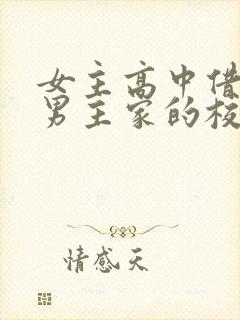 女主高中借
男主家的校
情感天